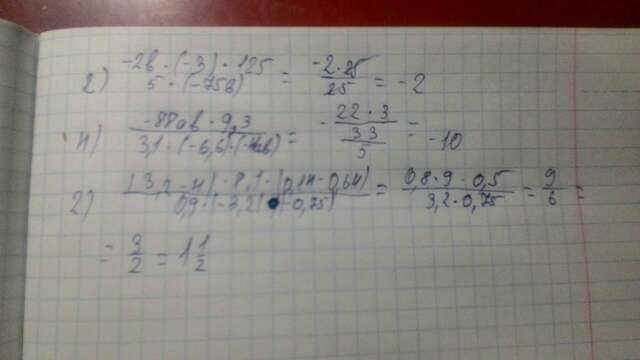 2) -2b · (-3) · 125 / 5 · (-75b) = -2·25 / 25 = -2
4) -88ab · 9,3 / 3,1 · (-6,6) · (-4b) = - 22·3 / 33/5 = -10
2) (3,2-4) · 8,1 · (0,14-0,64) / 0,9 · (-3,2) · (-0,75) = 0,8·9·0,5 / 3,2·0,75 = 9/6 =
= 3/2 = 1 1/2